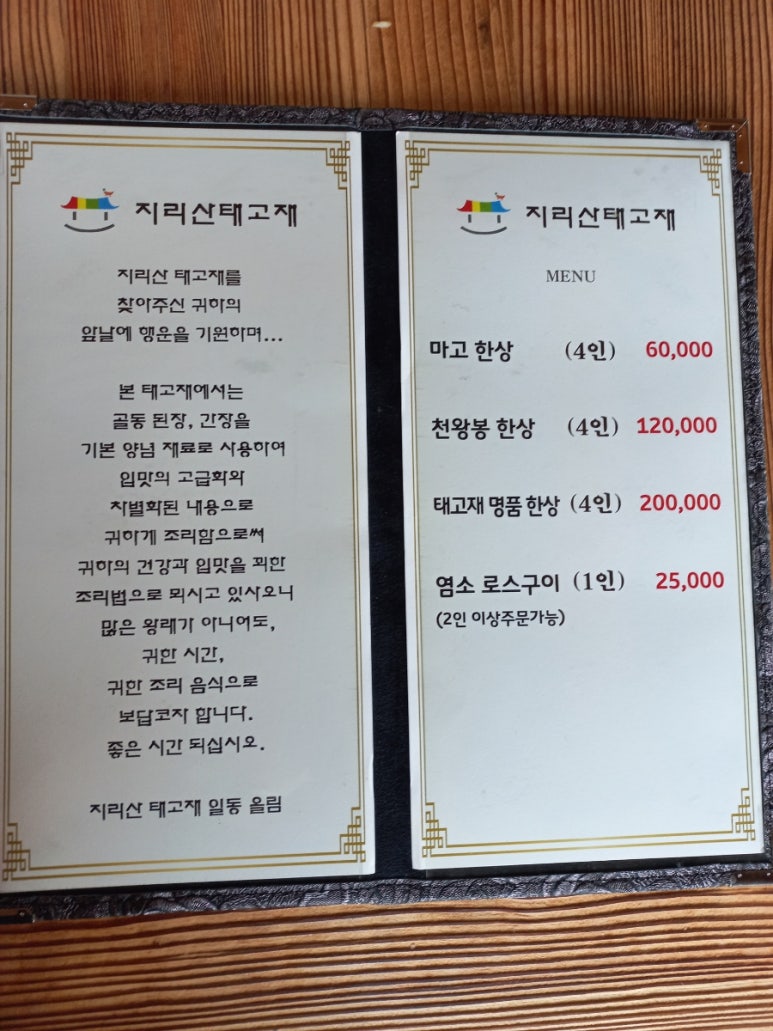 지리산태고재
지리산 태고재를
찾아주신 귀하의
앞날에 행운을 기원하며...
본 태고재에서는
골동 된장, 간장을
기본 양념 재료로 사용하여
입맛의 고급화와
차별화된 내용으로
귀하게 조리함으로써
귀하의 건강과 입맛을 꾀한
조리법으로 뫼시고 있사오니
많은 왕래가 아니어도,
귀한 시간,
귀한 조리 음식으로
보답코자 합니다.
좋은 시간 되십시오.
지리산 태고재 일동 올림
지리산태고재
MENU
마고 한상 (4인) 60,000
천왕봉 한상 (4인) 120,000
태고재 명품 한상 (4인) 200,000
염소 로스구이 (1인) 25,000
(2인 이상주문가능)